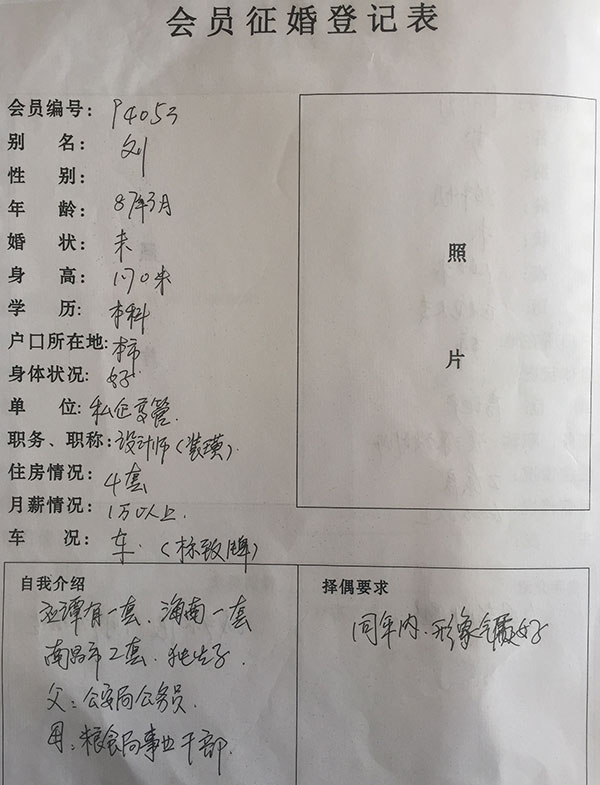 会员征婚登记表
会员编号: P4053
别 名: 刘
性 别:
年 龄: 87年3月
婚 状: 未
身 高: 170米
学 历: 本科
户口所在地: 本市
身体状况: 好
单 位: 私企高管.
职务、职称: 设计师(装璜).
住房情况: 4套
月薪情况: 1万以上.
车 况: 车.(标致牌)
照
片
自我介绍
有一套、海南一套
南昌市2套. 独生子.
父:公安局公务员.
母:粮食局事业干部.
择偶要求
同年内.形象气质好